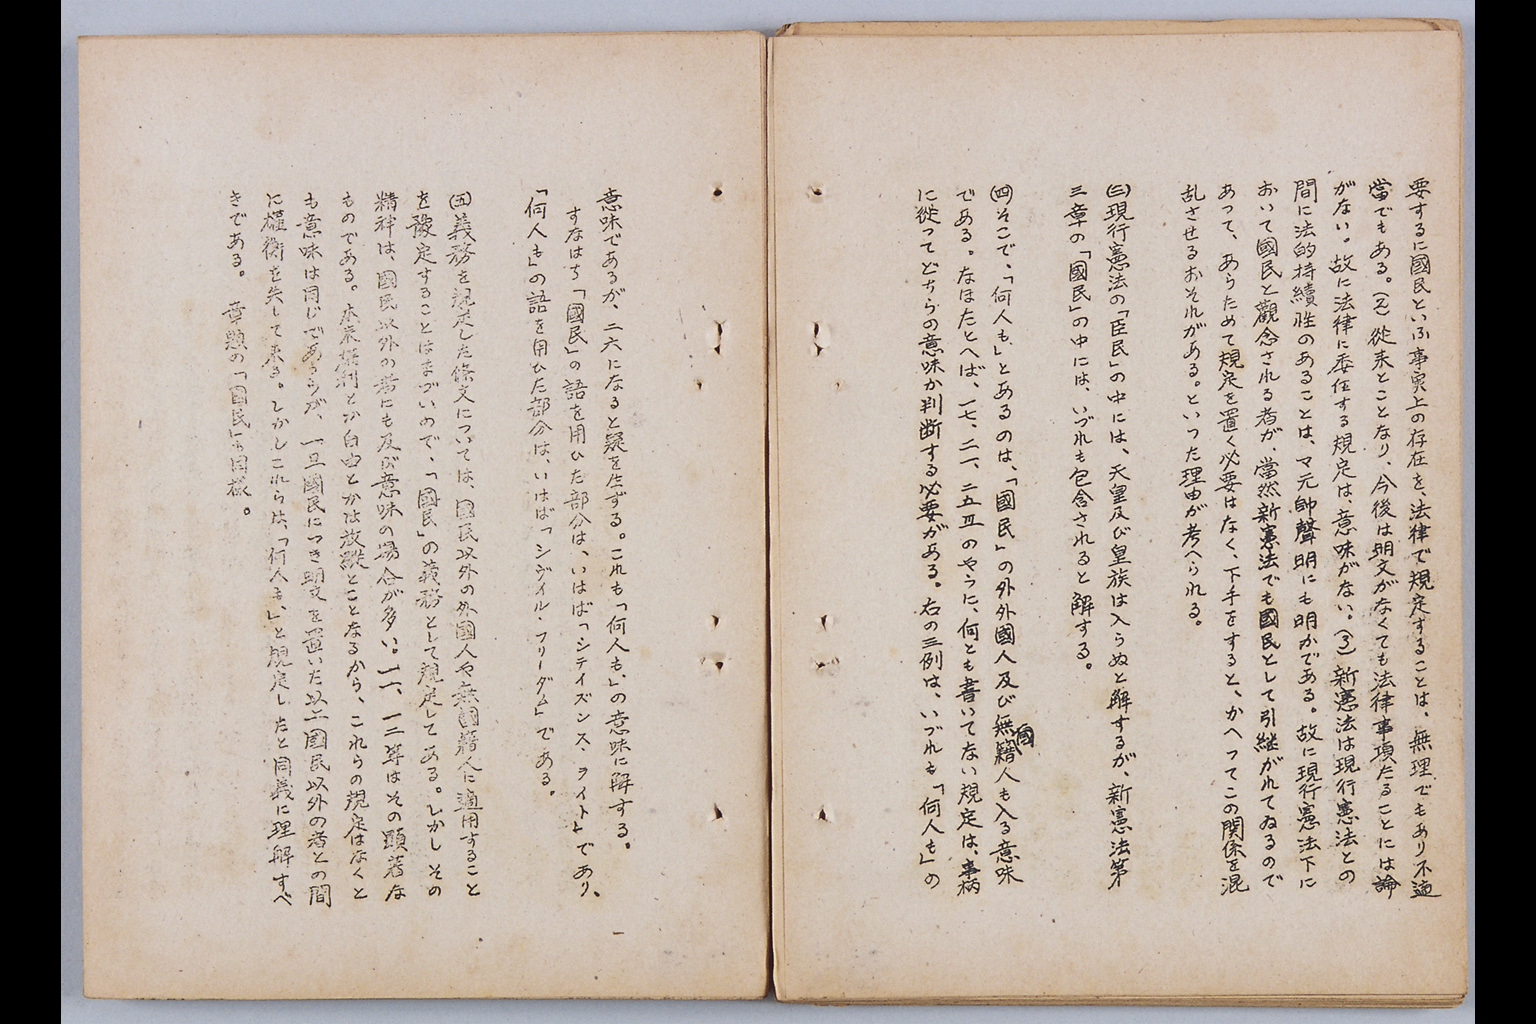 要するに國民といふ事実上の存在を、法律で規定することは、無理でもあり不適
當でもある。(2)從来とことなり、今後は明文がなくても法律事項たることには論
がない。故に法律に委任する規定は、意味がない。(3)新憲法は現行憲法との
間に法的持續性のあることは、マ元帥聲明にも明かである。故に現行憲法下に
おいて國民と觀念される者が、當然新憲法でも國民として引継がれてゐるので
あって、あらためて規定を置く必要はなく、下手をすると、かへってこの関係を混
乱させるおそれがある。といった理由が考へられる。
(三)現行憲法の「臣民」の中には、天皇及び皇族は入らぬと解するが、新憲法第
三章の「國民」の中には、いづれも包含されると解する。
(四)そこで、「何人も、」とあるのは、「國民」の外外國人及び無國籍人も入る意味
である。なほたとへば、一七、二一、二五Ⅱのやうに、何とも書いてない規定は、事柄
に從ってどちらの意味か判断する必要がある。右の三例は、いづれも「何人も」の
意味であるが、二六になると疑を生ずる。これも「何人も、」の意味に解する。
すなはち「國民」の語を用ひた部分は、いはば「シテイズンス・ライト」であり、
「何人も」の語を用ひた部分は、いはば「シヴイル・フリーダム」である。
(五)義務を規定した條文については、國民以外の外國人や無國籍人に適用すること
を豫定することはまづいので、「國民」の義務として規定してある。しかしその
精神は、國民以外の者にも及ぶ意味の場合が多い。一一、一二等はその顕著な
ものである。本来権利とか自由とかは放縦とことなるから、これらの規定はなくと
も意味は同じであらうが、一旦國民につき明文を置いた以上國民以外の者との間
に權衡を失して来る。しかしこれらは、「何人も、」と規定したと同義に理解すべ
きである。章題の「國民」も同様。